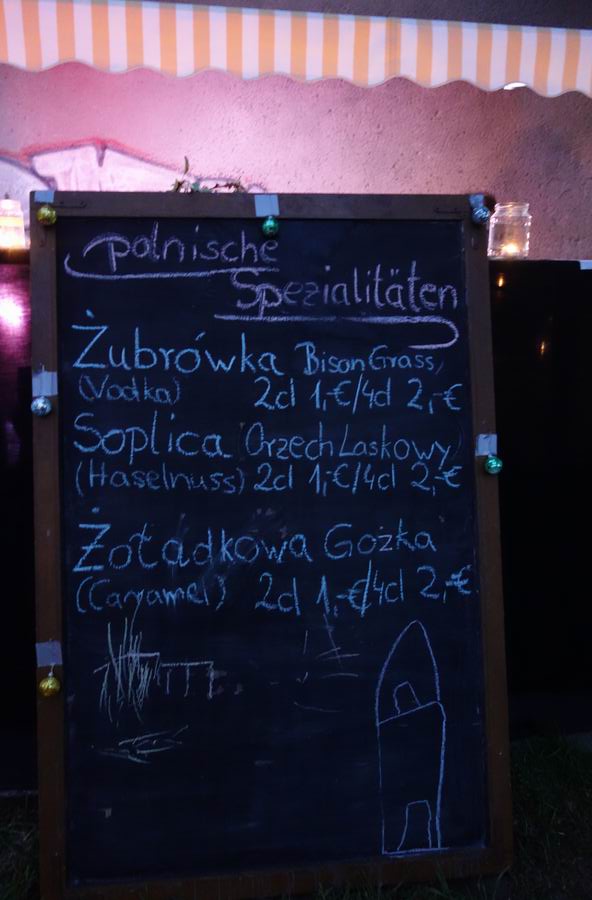 polnische
Spezialitäten
Żubrówka Bison Grass
(Vodka) 2cl 1,-€/4cl 2,-€
Soplica (Orzech Laskowy)
(Haselnuss) 2cl 1,-€/4cl 2,-€
Żołądkowa Gożka
(Caramel) 2cl 1,-€/4cl 2,-€